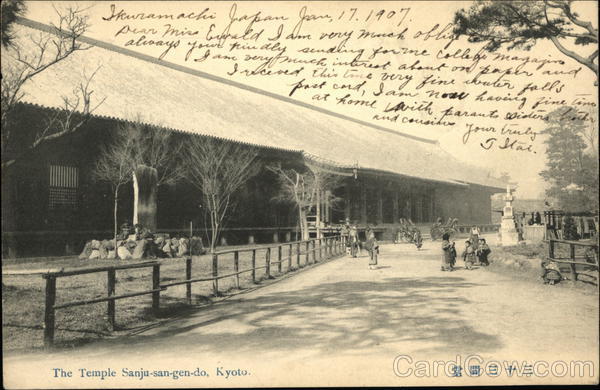 Ikuramachi Japan Jan, 17. 1907.
Dear Miss Ewald I am very much oblig
always your kindly sending for me College magazine
I am very much interest about on paper and
I receved this time very fine water falls
post card, I am now having fine time
at home with parants sisters
and cousins
your truly
T
The Temple Sanju-san-gen-do, Kyoto.
堂間三十三
CardCow.com